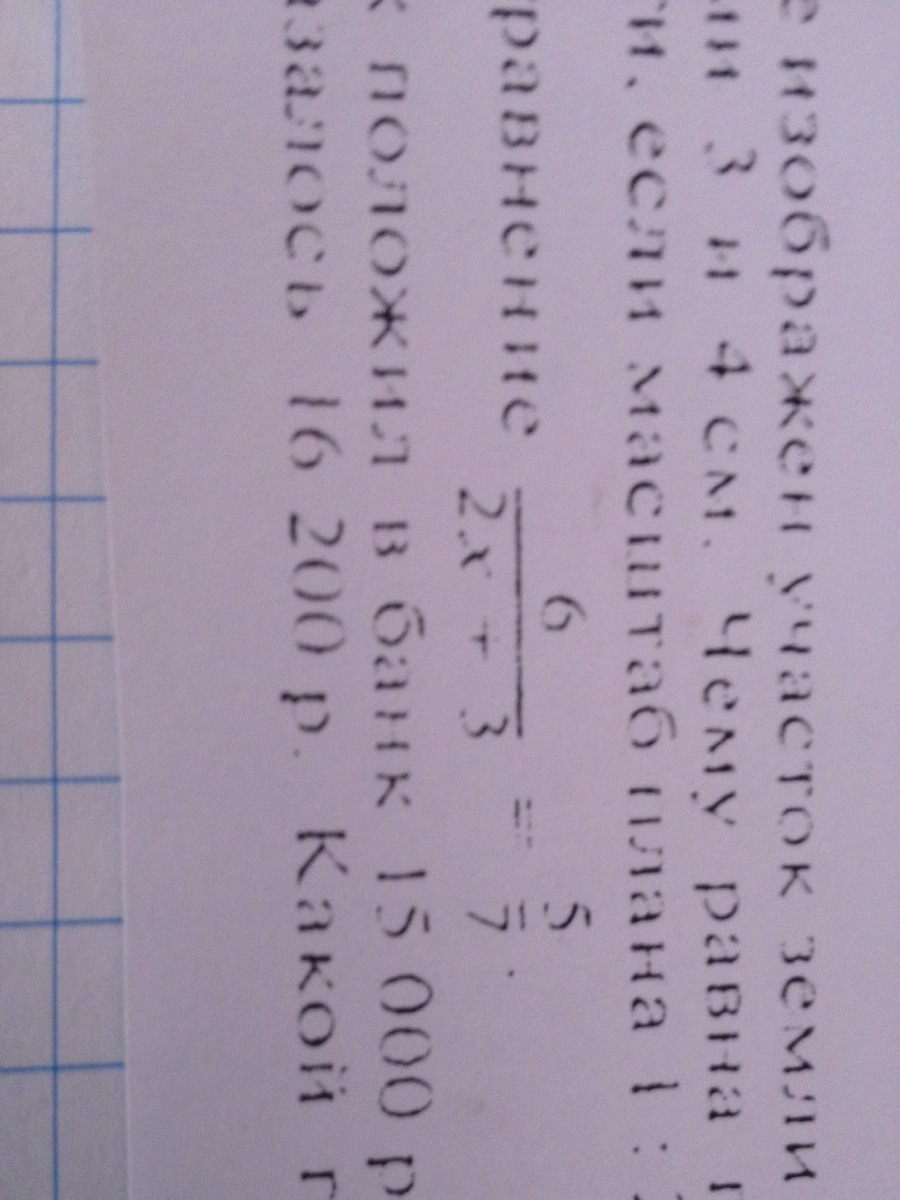 е изображен участок земли
ми 3 и 4 см. Чему равна
ти, если масштаб плана 1 :
равнение 6/(2x + 3) = 5/7.
к положил в банк 15 000 р
залось 16 200 р. Какой г